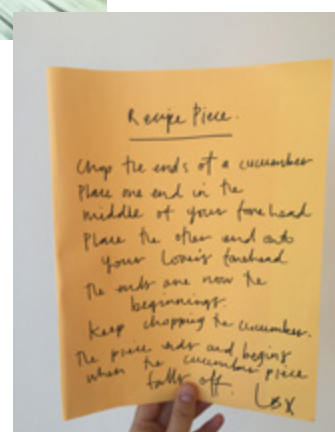 Recipe Piece.
Chop the ends of a cucumber
Place one end in the
middle of your forehead
Place the other end onto
your lover's forehead
The ends are now the
beginnings.
Keep chopping the cucumber.
The piece ends and begins
when the cucumber piece
falls off.